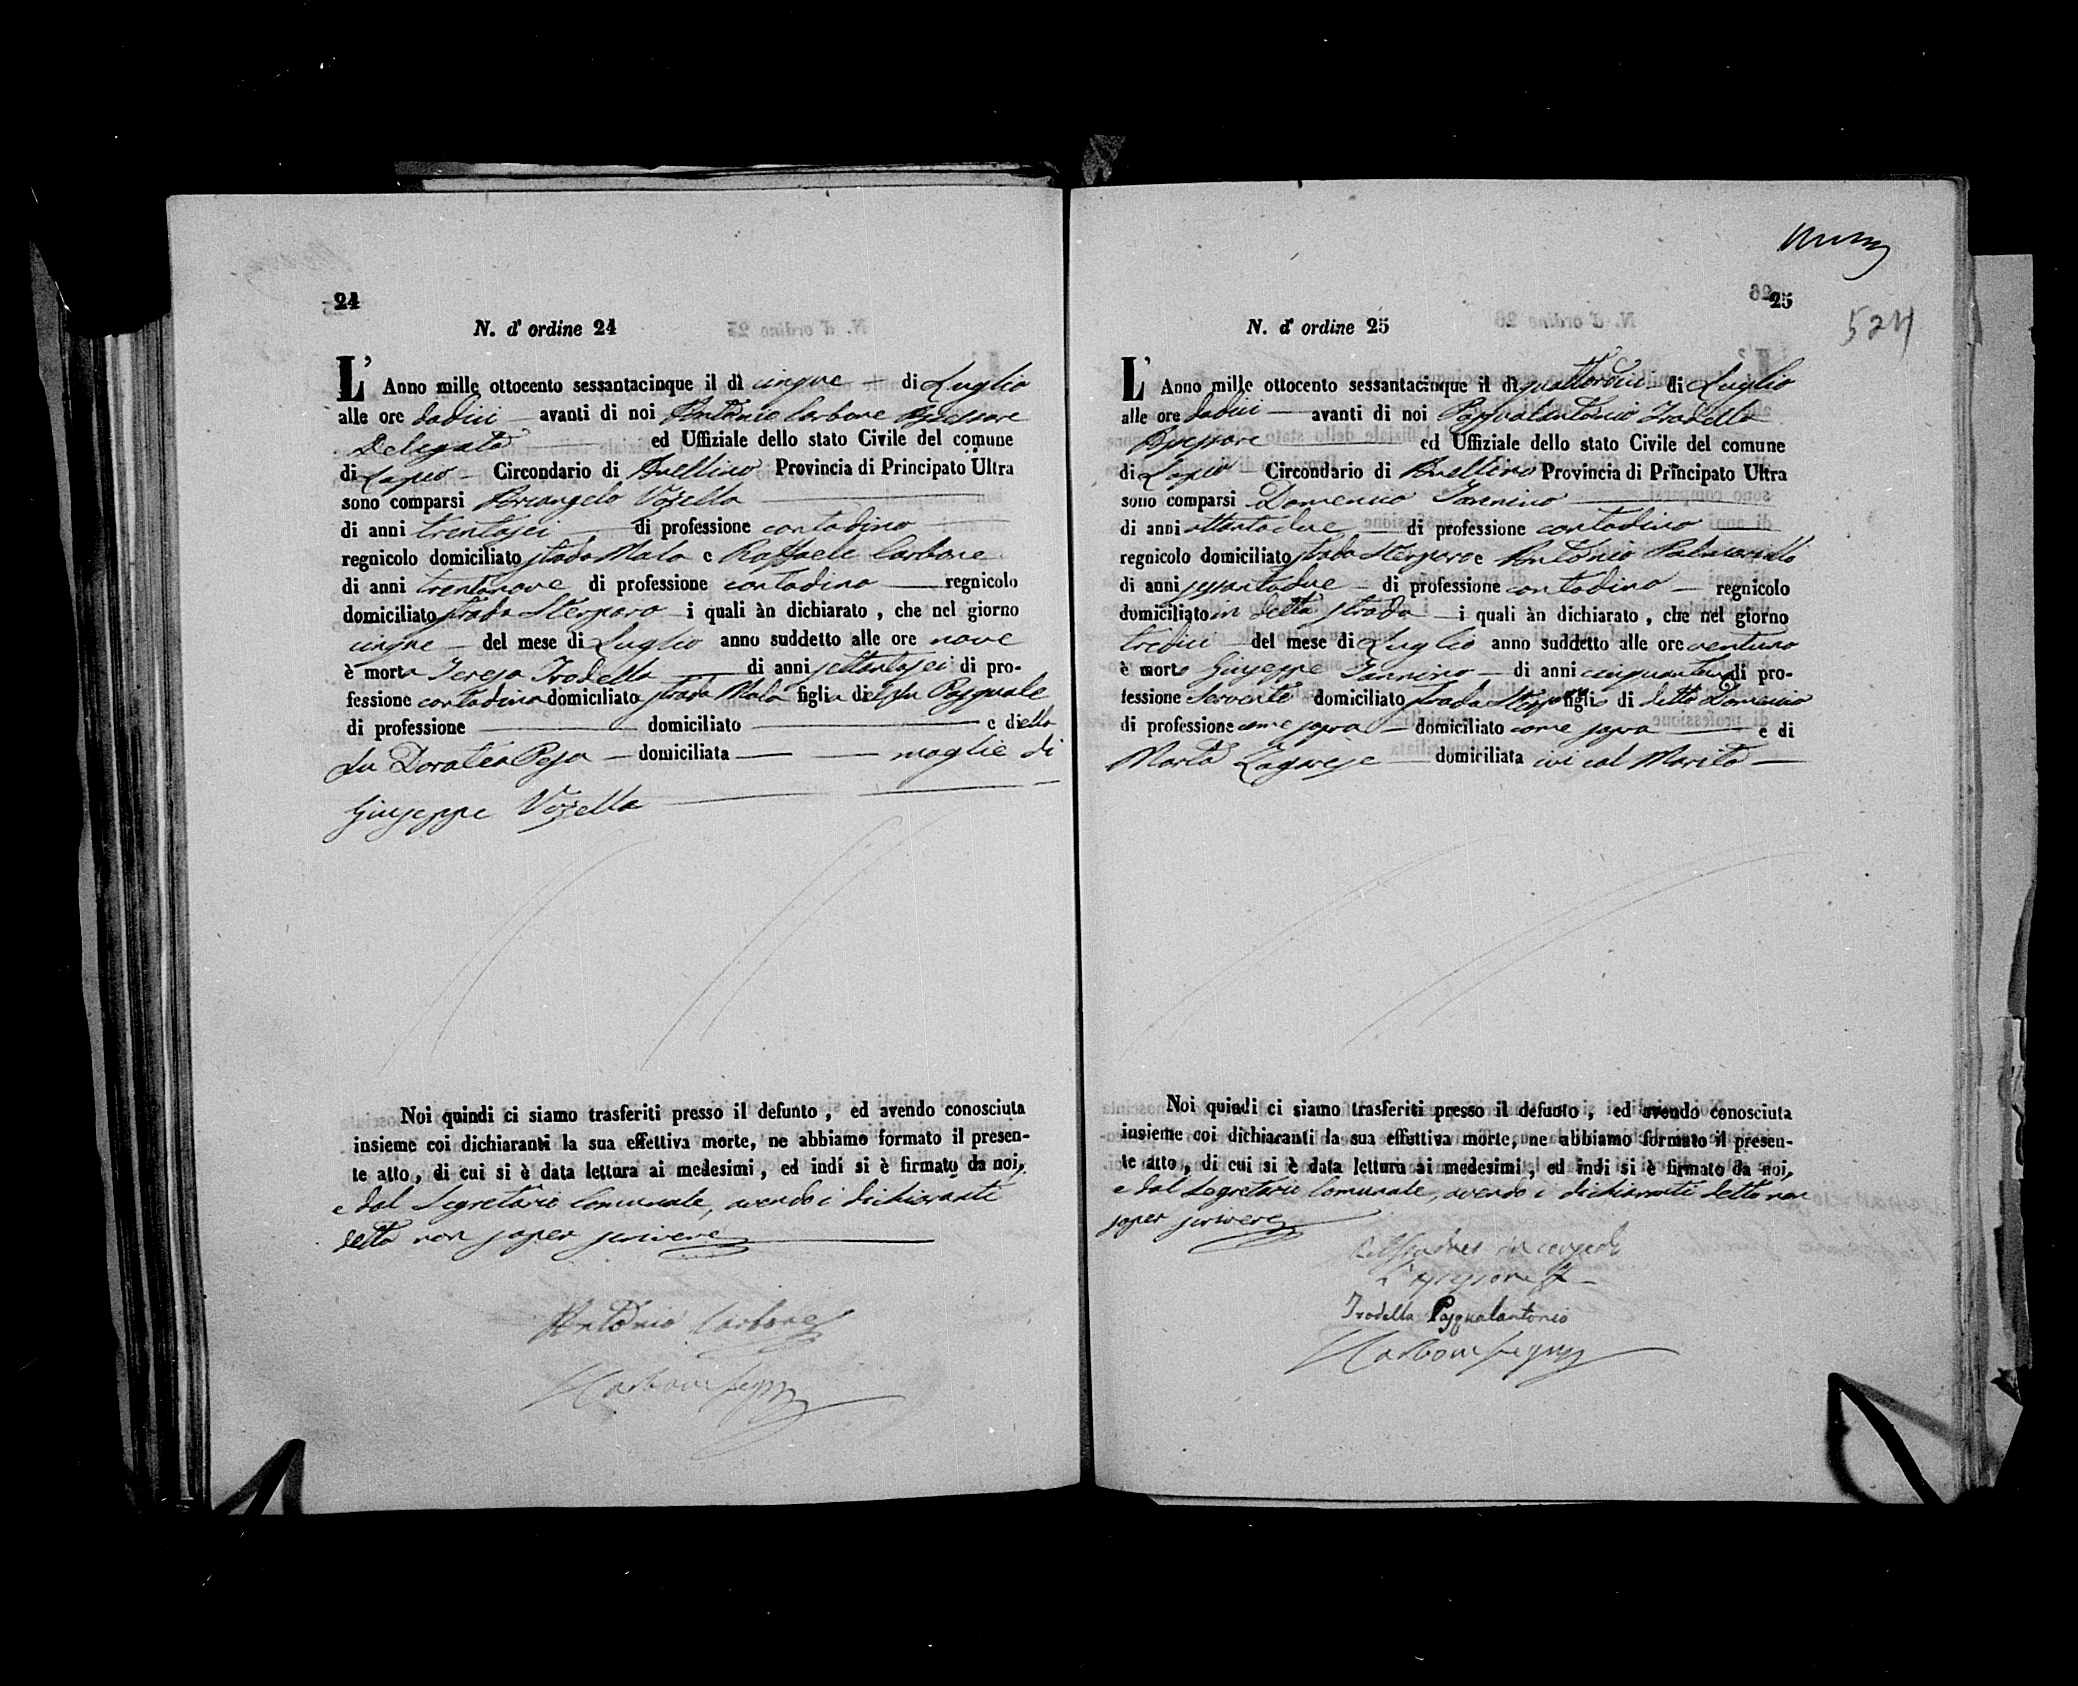 24
N. d' ordine 24
L' Anno mille ottocento sessantacinque il dì cinque di Luglio
alle ore dodici avanti di noi Antonio Carbone Assessore
Delegato ed Uffiziale dello stato Civile del comune
di Lapio Circondario di Avellino Provincia di Principato Ultra
sono comparsi Arcangelo Vozella
di anni trentasei di professione contadino
regnicolo domiciliato strada Mala e Raffaele Carbone
di anni trentanove di professione contadino regnicolo
domiciliato strada Sterparo i quali àn dichiarato, che nel giorno
cinque del mese di Luglio anno suddetto alle ore nove
è morta Teresa Trodella di anni settantasei di pro-
fessione contadina domiciliato strada Mala figlia del fu Pasquale
di professione domiciliato e della
fu Doratea Pesa domiciliata moglie di
Giuseppe Vozella
Noi quindi ci siamo trasferiti presso il defunto, ed avendo conosciuta
insieme coi dichiaranti la sua effettiva morte, ne abbiamo formato il presen-
te atto, di cui si è data lettura ai medesimi, ed indi si è firmato da noi,
e dal Segretario Comunale, avendo i dichiaranti
detto non saper scrivere
Antonio Carbone
Carbone
25
524
N. d' ordine 25
L' Anno mille ottocento sessantacinque il dì quattordici di Luglio
alle ore dodici avanti di noi Pasqualantonio Trodella
Assessore ed Uffiziale dello stato Civile del comune
di Lapio Circondario di Avellino Provincia di Principato Ultra
sono comparsi Domenico Iannino
di anni ottantadue di professione contadino
regnicolo domiciliato strada Sterparo e Antonio
di anni sessantadue di professione contadino regnicolo
domiciliato in detta strada i quali àn dichiarato, che nel giorno
tredici del mese di Luglio anno suddetto alle ore ventuno
è morto Giuseppe Iannino di anni di pro-
fessione Servente domiciliato strada figlio di detto Domenico
di professione come sopra domiciliato come sopra e di
Marta Lagarese domiciliata ivi col Marito
Noi quindi ci siamo trasferiti presso il defunto, ed avendo conosciuta
insieme coi dichiaranti la sua effettiva morte, ne abbiamo formato il presen-
te atto, di cui si è data lettura ai medesimi, ed indi si è firmato da noi,
e dal Segretario Comunale, avendo i dichiaranti detto non
saper scrivere
L'assessore
Trodella Pasqualantonio
Carbone